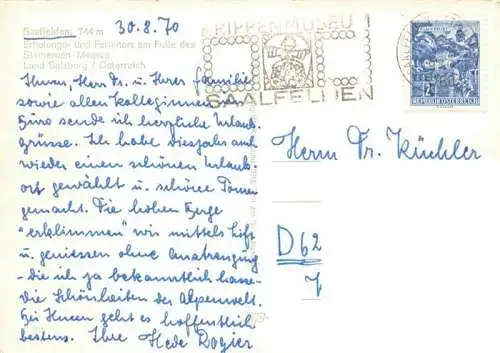 Saalfelden, 744 m
Erholungs- und Ferienort am Fuße des
Steinernen Meeres
Land Salzburg / Österreich
30.8.70
KRIPPENMUSEUM
SAALFELDEN
2S
REPUBLIK ÖSTERREICH
Ihnen, Herr Dr. u. Ihrer Familie
sowie allen Kolleginnen im
Büro sende ich herzliche Urlaubs-
grüsse. Ich habe diesjahr auch
wieder einen schönen Urlaubs-
ort gewählt u. schöne Touren
gemacht. Die hohen Berge
"erklimmen" wir mittels Lift
u. geniessen ohne Anstrengung
- die ich ja bekanntlich hasse -
die Schönheiten der Alpenwelt.
Bei Ihnen geht es hoffentlich
bestens. Ihre Hede Rogier
Herrn Dr. Küchler
D 62